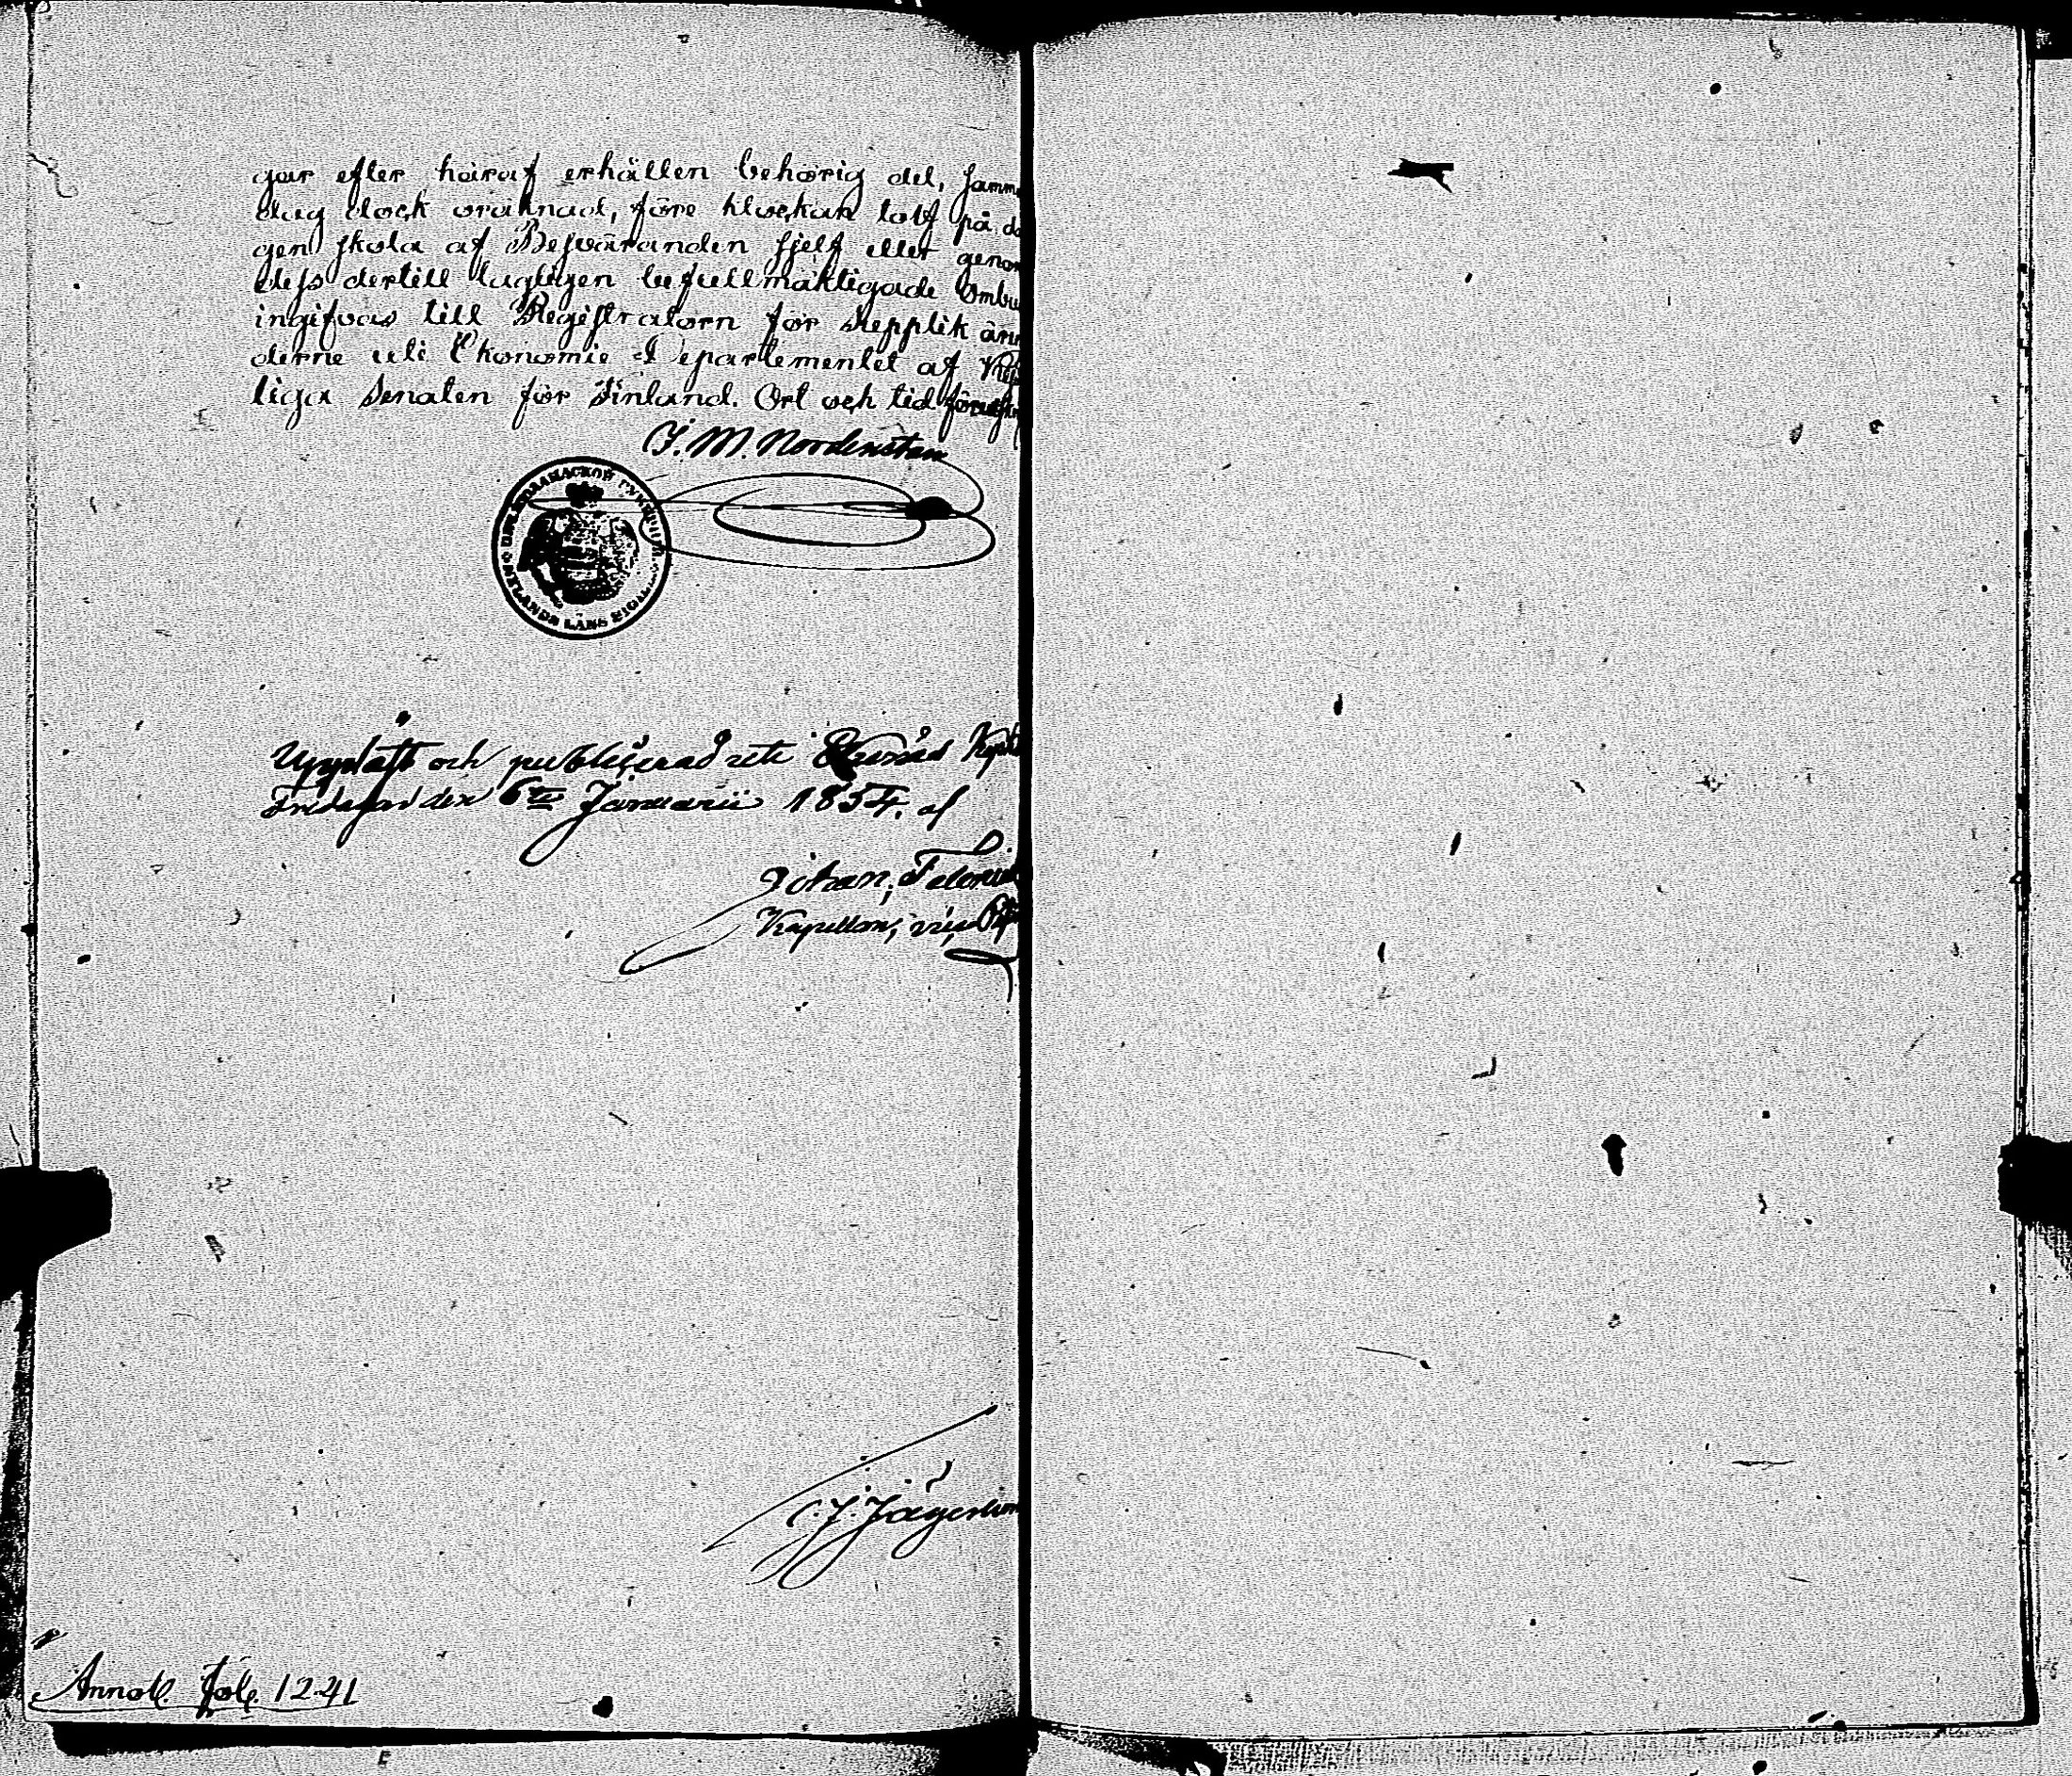 gar efter häraf erhållen behörig del, samma
dag dock oräknad, före klockan tolf på da
gen skola af Besväranden sjelf eller genom
dess dertill lagligen befullmäktigade Ombu
ingifvas till Registratorn för supplik ären
derne uti Ekonomie-Departementet af Kejs
liga Senaten för Finland. Ort och tid
J. M. Nordenstam
WESTLANDS LÄNS SIGILL
Uppläst och publicerad uti
Fredagen den 6te Januarii 1854. af
Johan
Kapellan,
Annot. fol. 1241